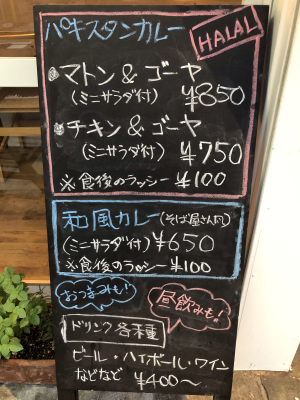 パキスタンカレー
HALAL
マトン & ゴーヤ
(ミニサラダ付) ¥850
チキン & ゴーヤ
(ミニサラダ付) ¥750
※食後のラッシー ¥100
和風カレー(そば屋さん風)
(ミニサラダ付) ¥650
※食後のラッシー ¥100
おつまみも!
昼飲みも!
ドリンク各種
ビール・ハイボール・ワイン
などなど ¥400〜